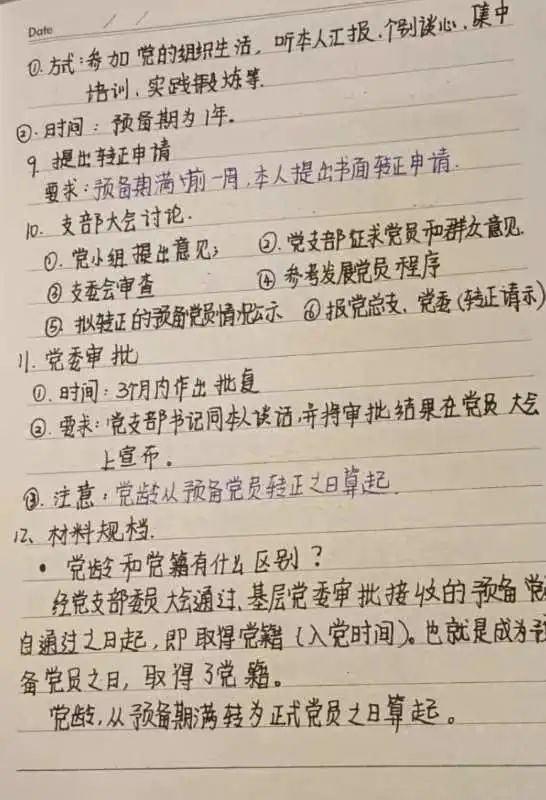 Date / /
①.方式:参加党的组织生活,听本人汇报.个别谈心,集中
培训、实践锻炼等.
②.时间:预备期为1年。
9.提出转正申请
要求:预备期满前一月,本人提出书面转正申请.
10.支部大会讨论.
①.党小组提出意见; ②.党支部征求党员和群众意见.
③支委会审查 ④参考发展党员程序
⑤拟转正的预备党员情况公示 ⑥报党总支、党委(转正请示)
11.党委审批
①.时间:3个月内作出批复
②.要求:党支部书记同本人谈话,并将审批结果在党员大会
上宣布。
③.注意:党龄从预备党员转正之日算起.
12、材料规档.
• 党龄和党籍有什么区别?
经党支部委员大会通过、基层党委审批接收的预备党
自通过之日起,即取得党籍(入党时间)。也就是成为预
备党员之日,取得了党籍。
党龄,从预备期满转为正式党员之日算起。